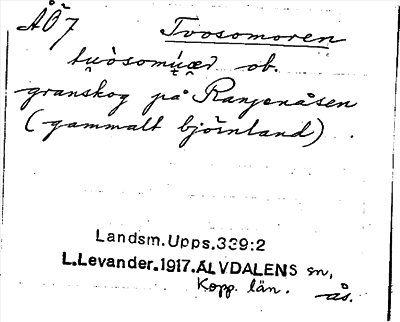 ÅÖ7 Tvosomoren
ob.
granskog på Ranjenåsen
(gammalt björnland)
Landsm.Upps.339:2
L.Levander.1917.ÄLVDALENS sn,
Kopp. län. ås.